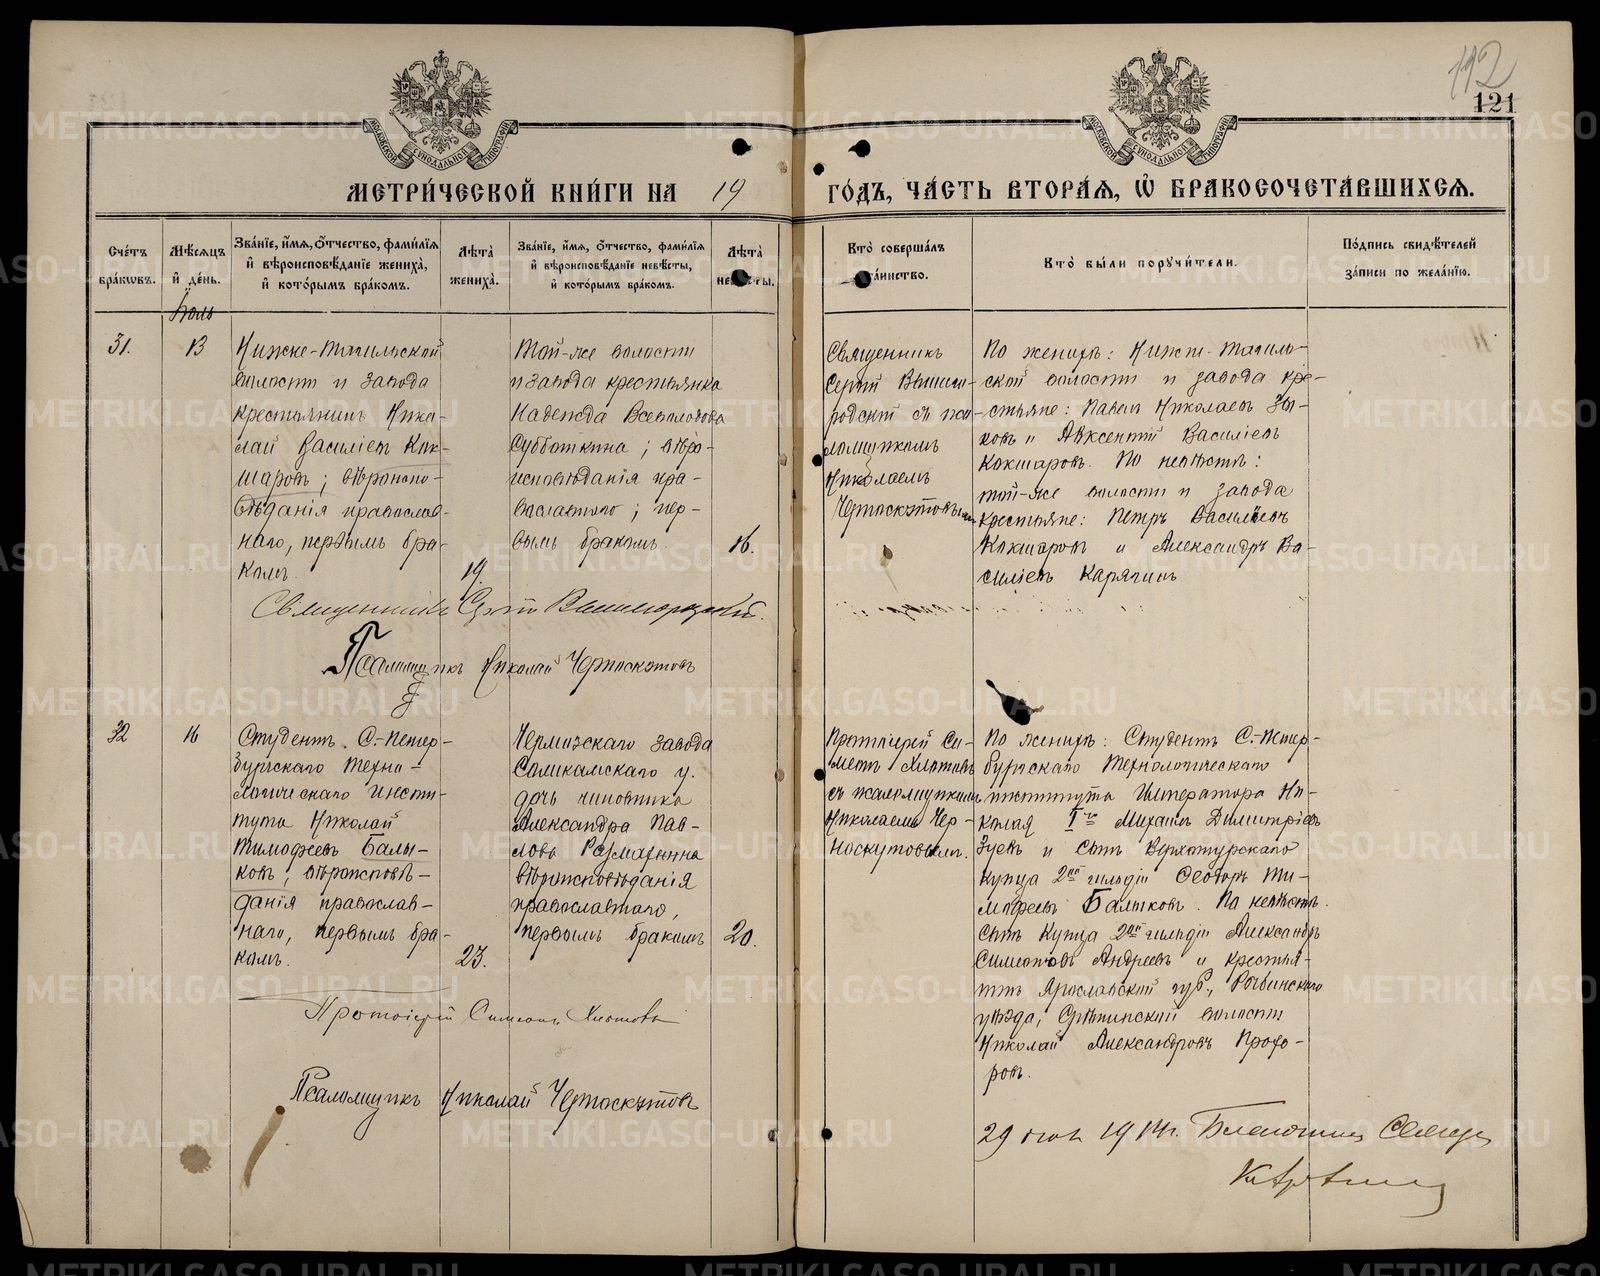 112
121
МОСКОВСКОЙ СѴНОДАЛЬНОЙ ТИПОГРАФІИ
МОСКОВСКОЙ СѴНОДАЛЬНОЙ ТИПОГРАФІИ
МЕТРИ́ЧЕСКОЙ КНИ́ГИ НА 19 ГО́ДЪ, ЧА́СТЬ ВТОРА́Я, Ѡ БРАКОСОЧЕТА́ВШИХСЯ.
Сче́тъ бра́кѡвъ.
Мѣ́сяцъ и де́нь.
Зва́нїе, и́мя, ѻ́тчество, фами́лїя и вѣроисповѣ́данїе жениха̀, и кото́рымъ бра́комъ.
Лѣта̀ жениха̀.
Зва́нїе, и́мя, ѻ́тчество, фами́лїя и вѣроисповѣ́данїе невѣ́сты, и кото́рымъ бра́комъ.
Лѣта̀
Кто̀ соверша́лъ та́инство.
Кто̀ бы́ли поручи́тели.
По́дпись свидѣ́телей за́писи по жела́нїю.
Іюль
31.
13
Нижне-Тагильской
волости и завода
крестьянинъ Нико-
лай Василіевъ Кок-
шаровъ; вѣроиспо-
вѣданія православ-
наго, первымъ бра-
комъ.
19.
Той-же волости
и завода крестьянка
Надежда Всеволодова
Субботкина; вѣро-
исповѣданія пра-
вославнаго; пер-
вымъ бракомъ.
16.
Священникъ
Сергій Вышего-
родскій съ пса-
ломщикомъ
Николаемъ
Черноскутовымъ
По женихѣ: Нижне-Тагиль-
ской волости и завода кре-
стьяне: Павелъ Николаевъ Зы-
ковъ и Авксентій Василіевъ
Кокшаровъ. По невѣстѣ:
той-же волости и завода
крестьяне: Петръ Василіевъ
Кокшаровъ и Александръ Ва-
силіевъ Карягинъ
Священникъ Сергій Вышегородскій.
Псаломщикъ Николай Черноскутовъ
32
16
Студентъ С.-Петер-
бургскаго Техно-
логическаго Инсти-
тута Николай
Тимофеевъ Балы-
ковъ; вѣроисповѣ-
данія православ-
наго, первымъ бра-
комъ.
23.
Чермозскаго завода
Соликамскаго у.
дочь чиновника
Александра Пав-
лова
вѣроисповѣданія
православнаго,
первымъ бракомъ
20.
Протоіерей Си-
меонъ Хлотовъ
съ псаломщикомъ
Николаемъ Чер-
носкутовымъ.
По женихѣ: Студентъ С.-Петер-
бургскаго Технологическаго
института Императора Ни-
колая I-го Михаилъ Димитріевъ
Зуевъ и сынъ Верхотурскаго
купца 2ой гильдіи Ѳеодоръ Ти-
мофеевъ Балыковъ. По невѣстѣ
сынъ купца 2ой гильдіи Александръ
Симеоновъ Андреевъ и крестья-
нинъ Ярославской губ., Рыбинскаго
уѣзда, волости
Николай Александровъ Прохо-
ровъ.
Протоіерей Симеонъ Хлотовъ
Псаломщикъ Николай Черноскутовъ
29 1914г. Благочинный
METRIKI.GASO-URAL.RU